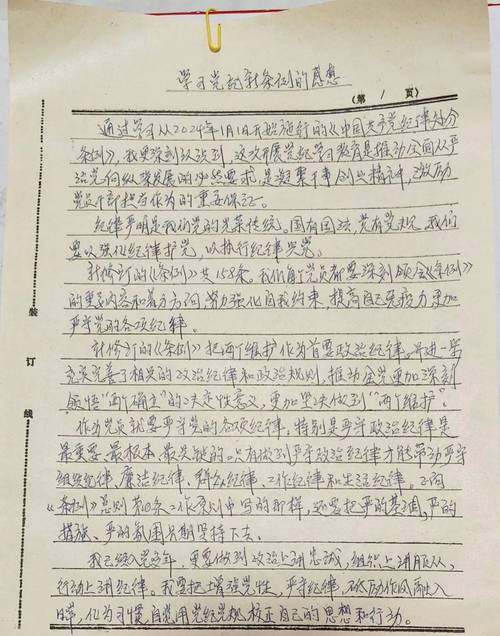 学习党纪新条例的感想
(第 1 页)
通过学习从2024年1月1日开始施行的《中国共产党纪律处分
条例》,我更深刻认识到,这次开展党纪学习教育是推动全面从严
治党向纵深发展的必然要求,是凝聚干事创业精神,激励
党员干部担当作为的重要保证。
纪律严明是我们党的光荣传统。国有国法,党有党规,我们
要以强化纪律护党,以执行纪律兴党。
新修订的《条例》共158条。我们每个党员都要深刻领会《条例》
的重点内容和着力方向,努力强化自我约束,提高自己免疫力,更加
严守党的各项纪律。
新修订的《条例》把两个维护作为首要政治纪律。并进一步
充实完善了相关的政治纪律和政治规则,推动全党更加深刻
领悟"两个确立"的决定性意义,更加坚决做到"两个维护"。
作为党员就要严守党的各项纪律,特别是严守政治纪律是
最重要、最根本、最关键的。只有做到严守政治纪律才能带动严守
组织纪律、廉洁纪律、群众纪律、工作纪律和生活纪律。正向
《条例》总则第10条工作原则中写的那样,还要把严的基调,严的
措施、严的氛围长期坚持下去。
我已经入党多年,更要做到政治上讲忠诚,组织上讲服从,
行动上讲纪律。我要把增强党性,严守纪律,砥砺作风融入
日常,化为习惯,自觉用党纪党规校正自己的思想和行动。
装
订
线